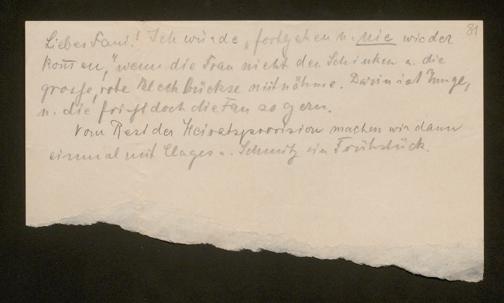 81
Lieber Fani! Ich würde „fortgehen u. nie wieder
kommen," wenn die Frau nicht den Schinken u. die
große, rote Blechbüchse mitnähme. Darin ist Zunge,
u. die frißt doch die Frau so gern.
Vom Rest der Heiratsprovision machen wir dann
einmal mit Clages u. Schmitz ein Frühstück.